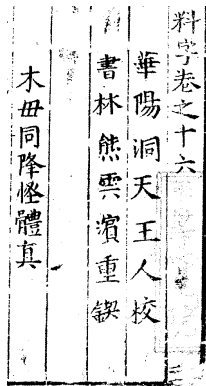 料字卷之十六
華陽洞天王人校
書林熊雲濱重鍥
木母同降怪體真